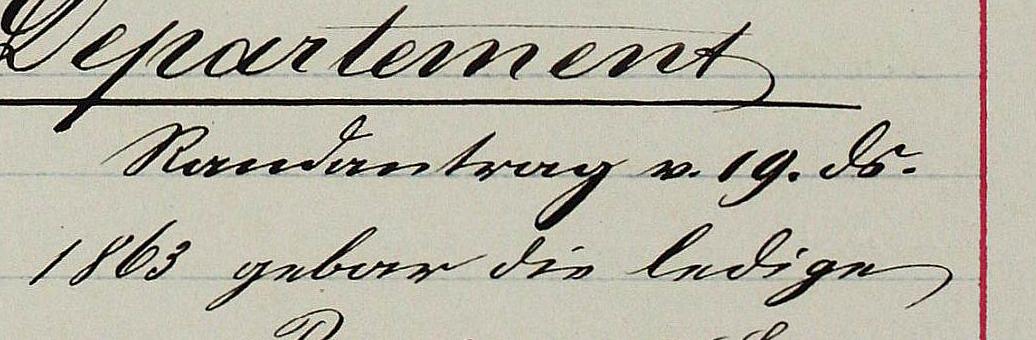 Departement
Randantrag v. 19. ds.
1863 gebar die ledige